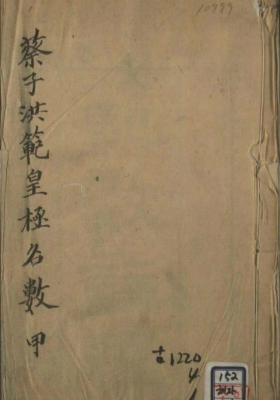 蔡子洪範皇極名數 甲
10999
古1220
4
1
152